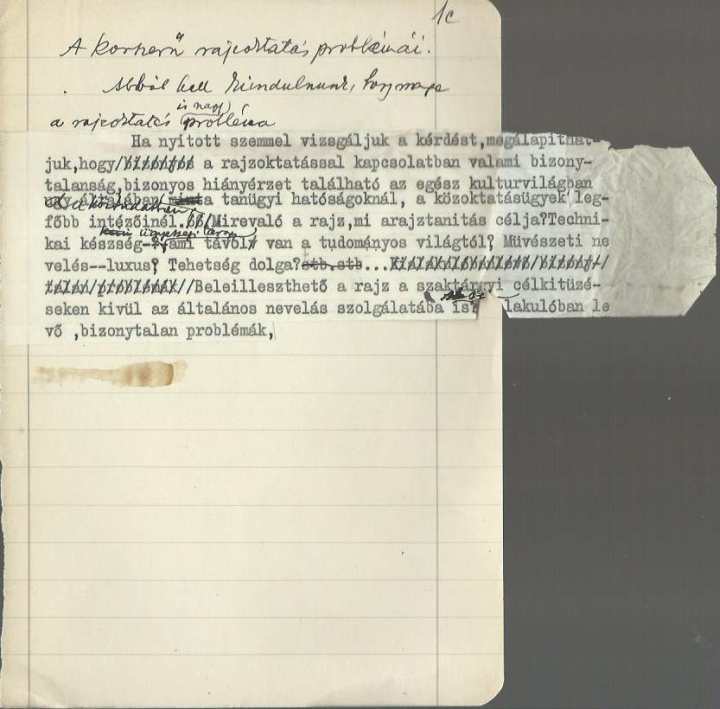 1c
A korszerű rajzoktatás problémái.
Abból kell kiindulnunk, hogy maga
a rajzoktatás is nagy probléma
Ha nyitott szemmel vizsgáljuk a kérdést,megálapithat-
juk,hogy a rajzoktatással kapcsolatban valami bizony-
talanság,bizonyos hiányérzet található az egész kulturvilágban
a tanügyi hatóságoknál, a közoktatásügyek leg-
főbb intézőinél. Mirevaló a rajz,mi arajztanitás célja?Techni-
kai készség-?,ami távol van a tudományos világtól? Müvészeti ne
velés--luxus? Tehetség dolga?stb.stb...
Beleilleszthető a rajz a szaktárgyi célkitüzé-
seken kivül az általános nevelás szolgálatába is? lakulóban le
vő ,bizonytalan problémák,